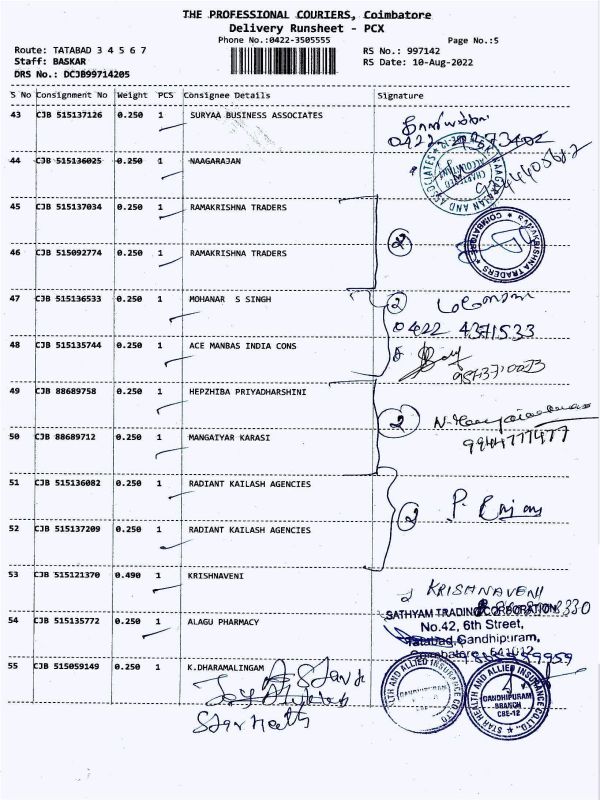 THE PROFESSIONAL COURIERS, Coimbatore
Delivery Runsheet - PCX
Phone No.:0422-3505555
Page No.:5
Route: TATABAD 3 4 5 6 7
RS No.: 997142
Staff: BASKAR
RS Date: 10-Aug-2022
DRS No.: DCJB99714205
S No Consignment No Weight PCS Consignee Details Signature
43 CJB 515137126 0.250 1 SURYAA BUSINESS ASSOCIATES
44 CJB 515136025 0.250 1 NAAGARAJAN
45 CJB 515137034 0.250 1 RAMAKRISHNA TRADERS
RAMAKRISHNA TRADERS
COIMBATORE
2
46 CJB 515092774 0.250 1 RAMAKRISHNA TRADERS
47 CJB 515136533 0.250 1 MOHANAR S SINGH
2
0422 4371533
48 CJB 515135744 0.250 1 ACE MANBAS INDIA CONS
49 CJB 88689758 0.250 1 HEPZHIBA PRIYADHARSHINI
2
9944777477
50 CJB 88689712 0.250 1 MANGAIYAR KARASI
51 CJB 515136082 0.250 1 RADIANT KAILASH AGENCIES
2
52 CJB 515137209 0.250 1 RADIANT KAILASH AGENCIES
53 CJB 515121370 0.490 1 KRISHNAVENI
KRISHNAVENI
SATHYAM TRADING CORPORATION
54 CJB 515135772 0.250 1 ALAGU PHARMACY
No.42, 6th Street,
Tatabad, Gandhipuram,
Coimbatore - 641012
55 CJB 515059149 0.250 1 K.DHARAMALINGAM
STAR HEALTH AND ALLIED INSURANCE CO.LTD.
GANDHIPURAM
BRANCH
CBE-12
Star Health